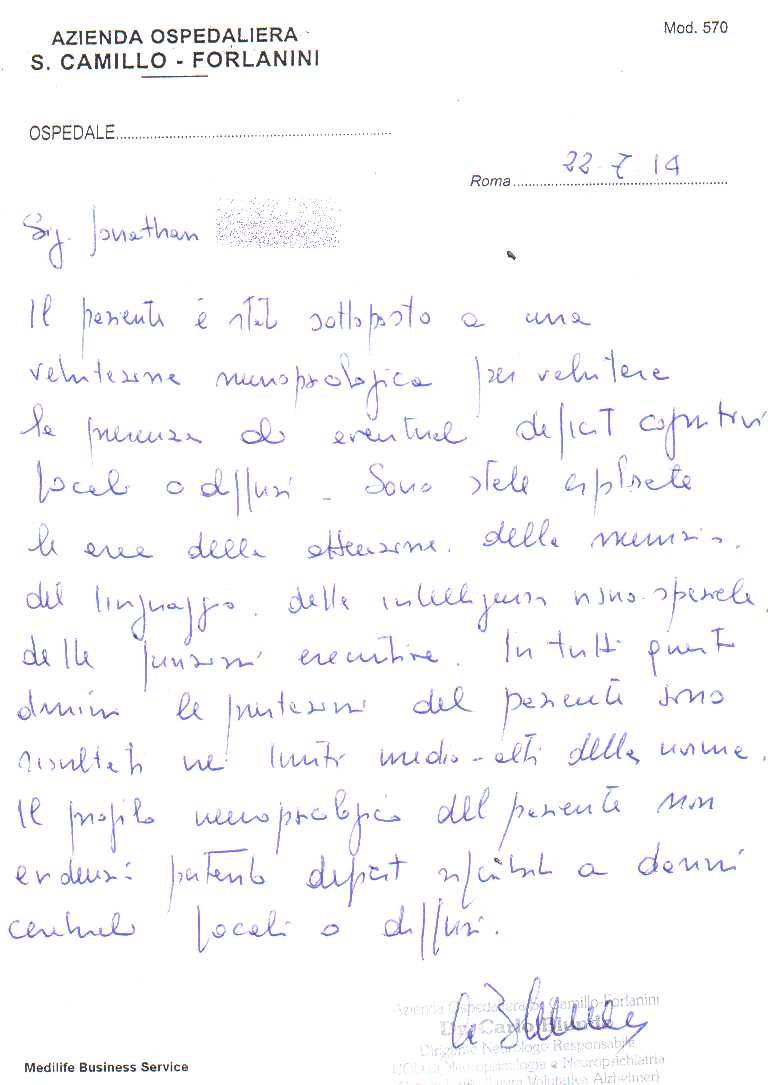 AZIENDA OSPEDALIERA
S. CAMILLO - FORLANINI
Mod. 570
OSPEDALE
Roma 22.7.14
Sig. Jonathan
Il paziente è stato sottoposto a una
valutazione neuropsicologica per valutare
la presenza di eventuali deficit cognitivi
focali o diffusi - Sono state esplorate
le aree della attenzione, della memoria,
del linguaggio, della intelligenza visuo-spaziale,
delle funzioni esecutive. In tutti questi
domini le prestazioni del paziente sono
risultati nei limiti medio-alti della norma.
Il profilo neuropsicologico del paziente non
evidenzia pertanto deficit riferibili a danni
cerebrali focali o diffusi.
Azienda Ospedaliera S. Camillo-Forlanini
Dr. Carlo Blundo
Dirigente Neurologo Responsabile
UOD di Neuropsicologia e Neuropsichiatria
(Unità Valutativa Alzheimer)
Medilife Business Service